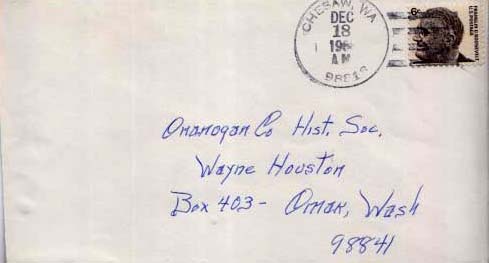 CHESAW, WA
DEC
18
AM
6c
FRANKLIN D. ROOSEVELT
U.S. POSTAGE
Okanogan Co Hist. Soc.
Wayne Houston
Box 403 - Omak, Wash
98841